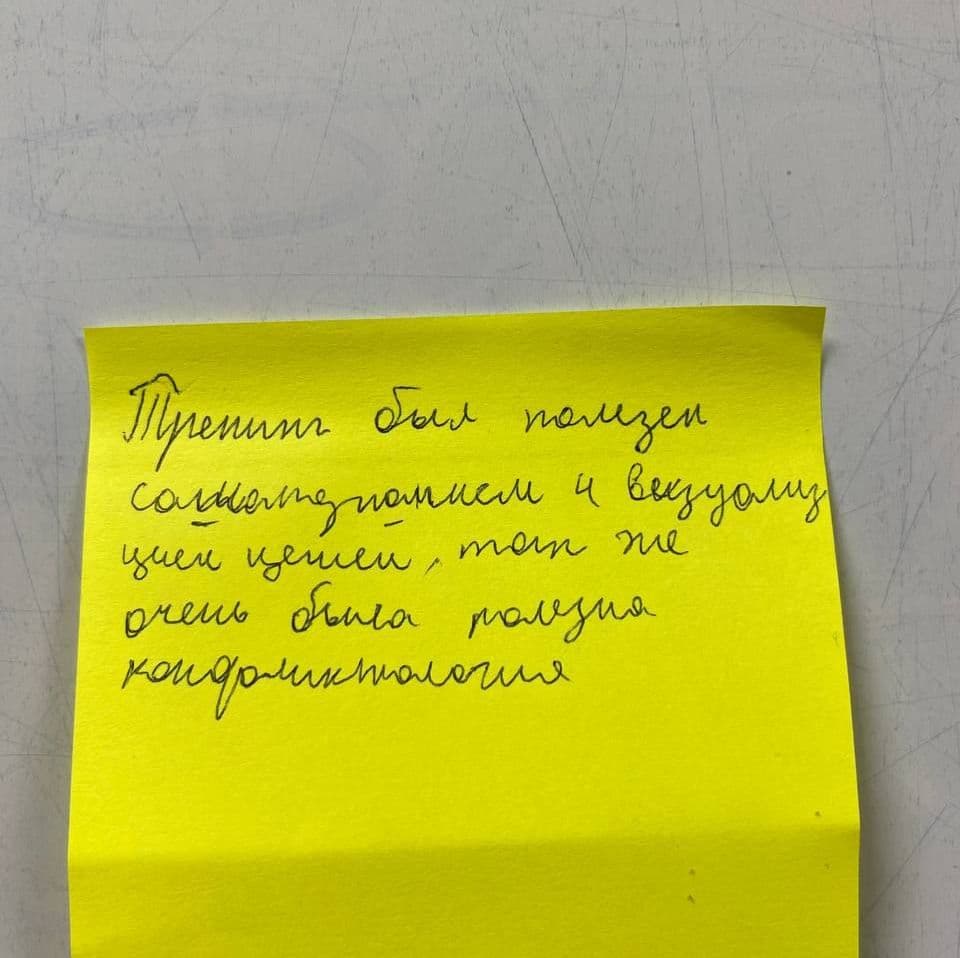 Тренинг был полезен
самопознанием и визуализ
цией целей, так же
очень была полезна
конфликтология